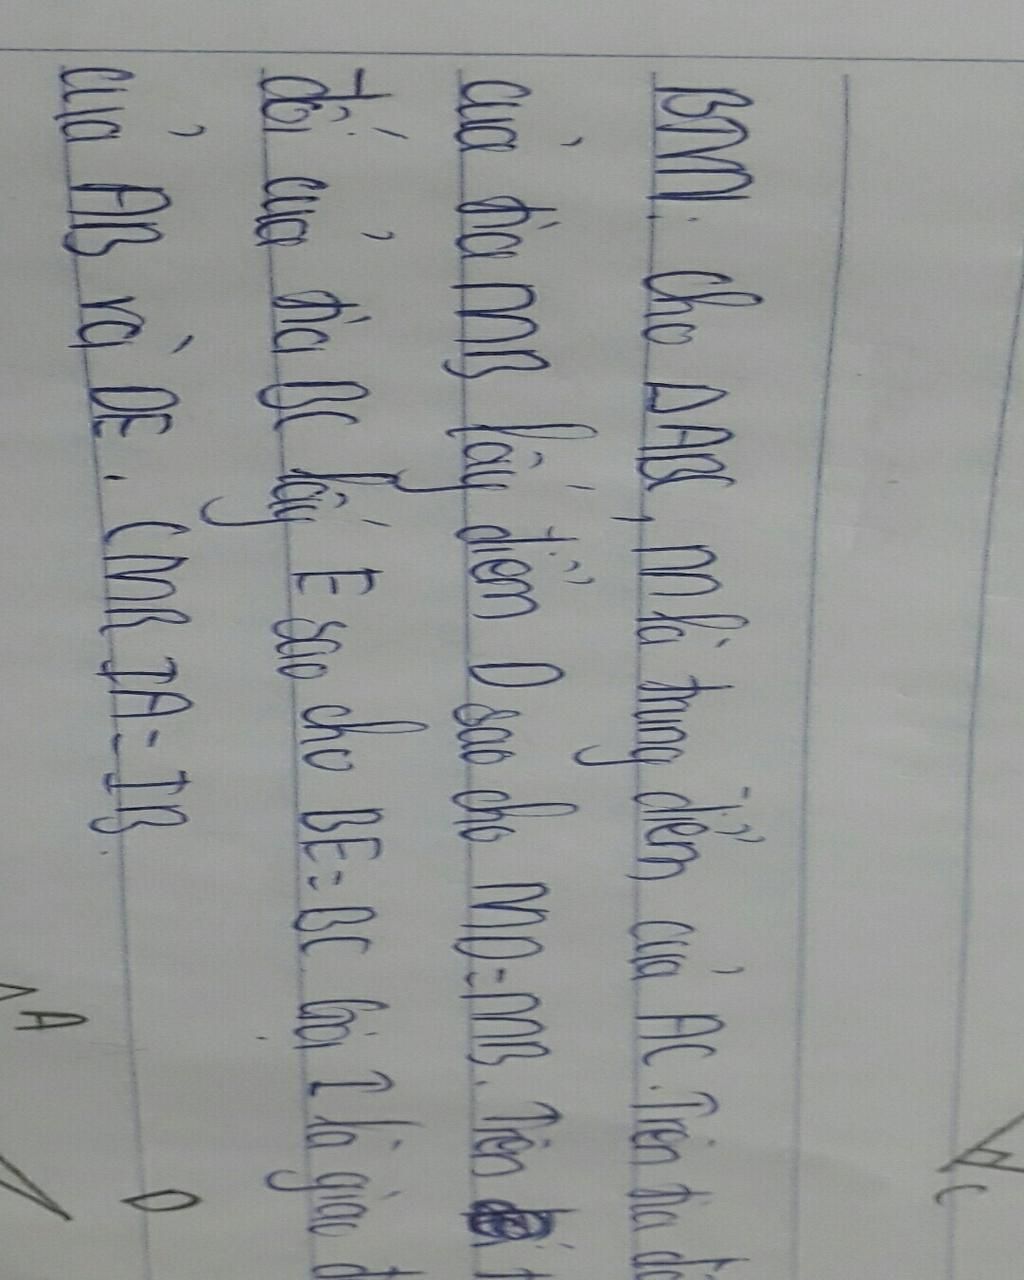 BTVN: Cho ΔABC, M là trung điểm của AC. Trên tia
của tia MB lấy điểm D sao cho MD=MB. Trên
đối của tia BC lấy E sao cho BE=BC. Gọi I là giao
của AB và DE. CMR IA=IB.
A
D
C